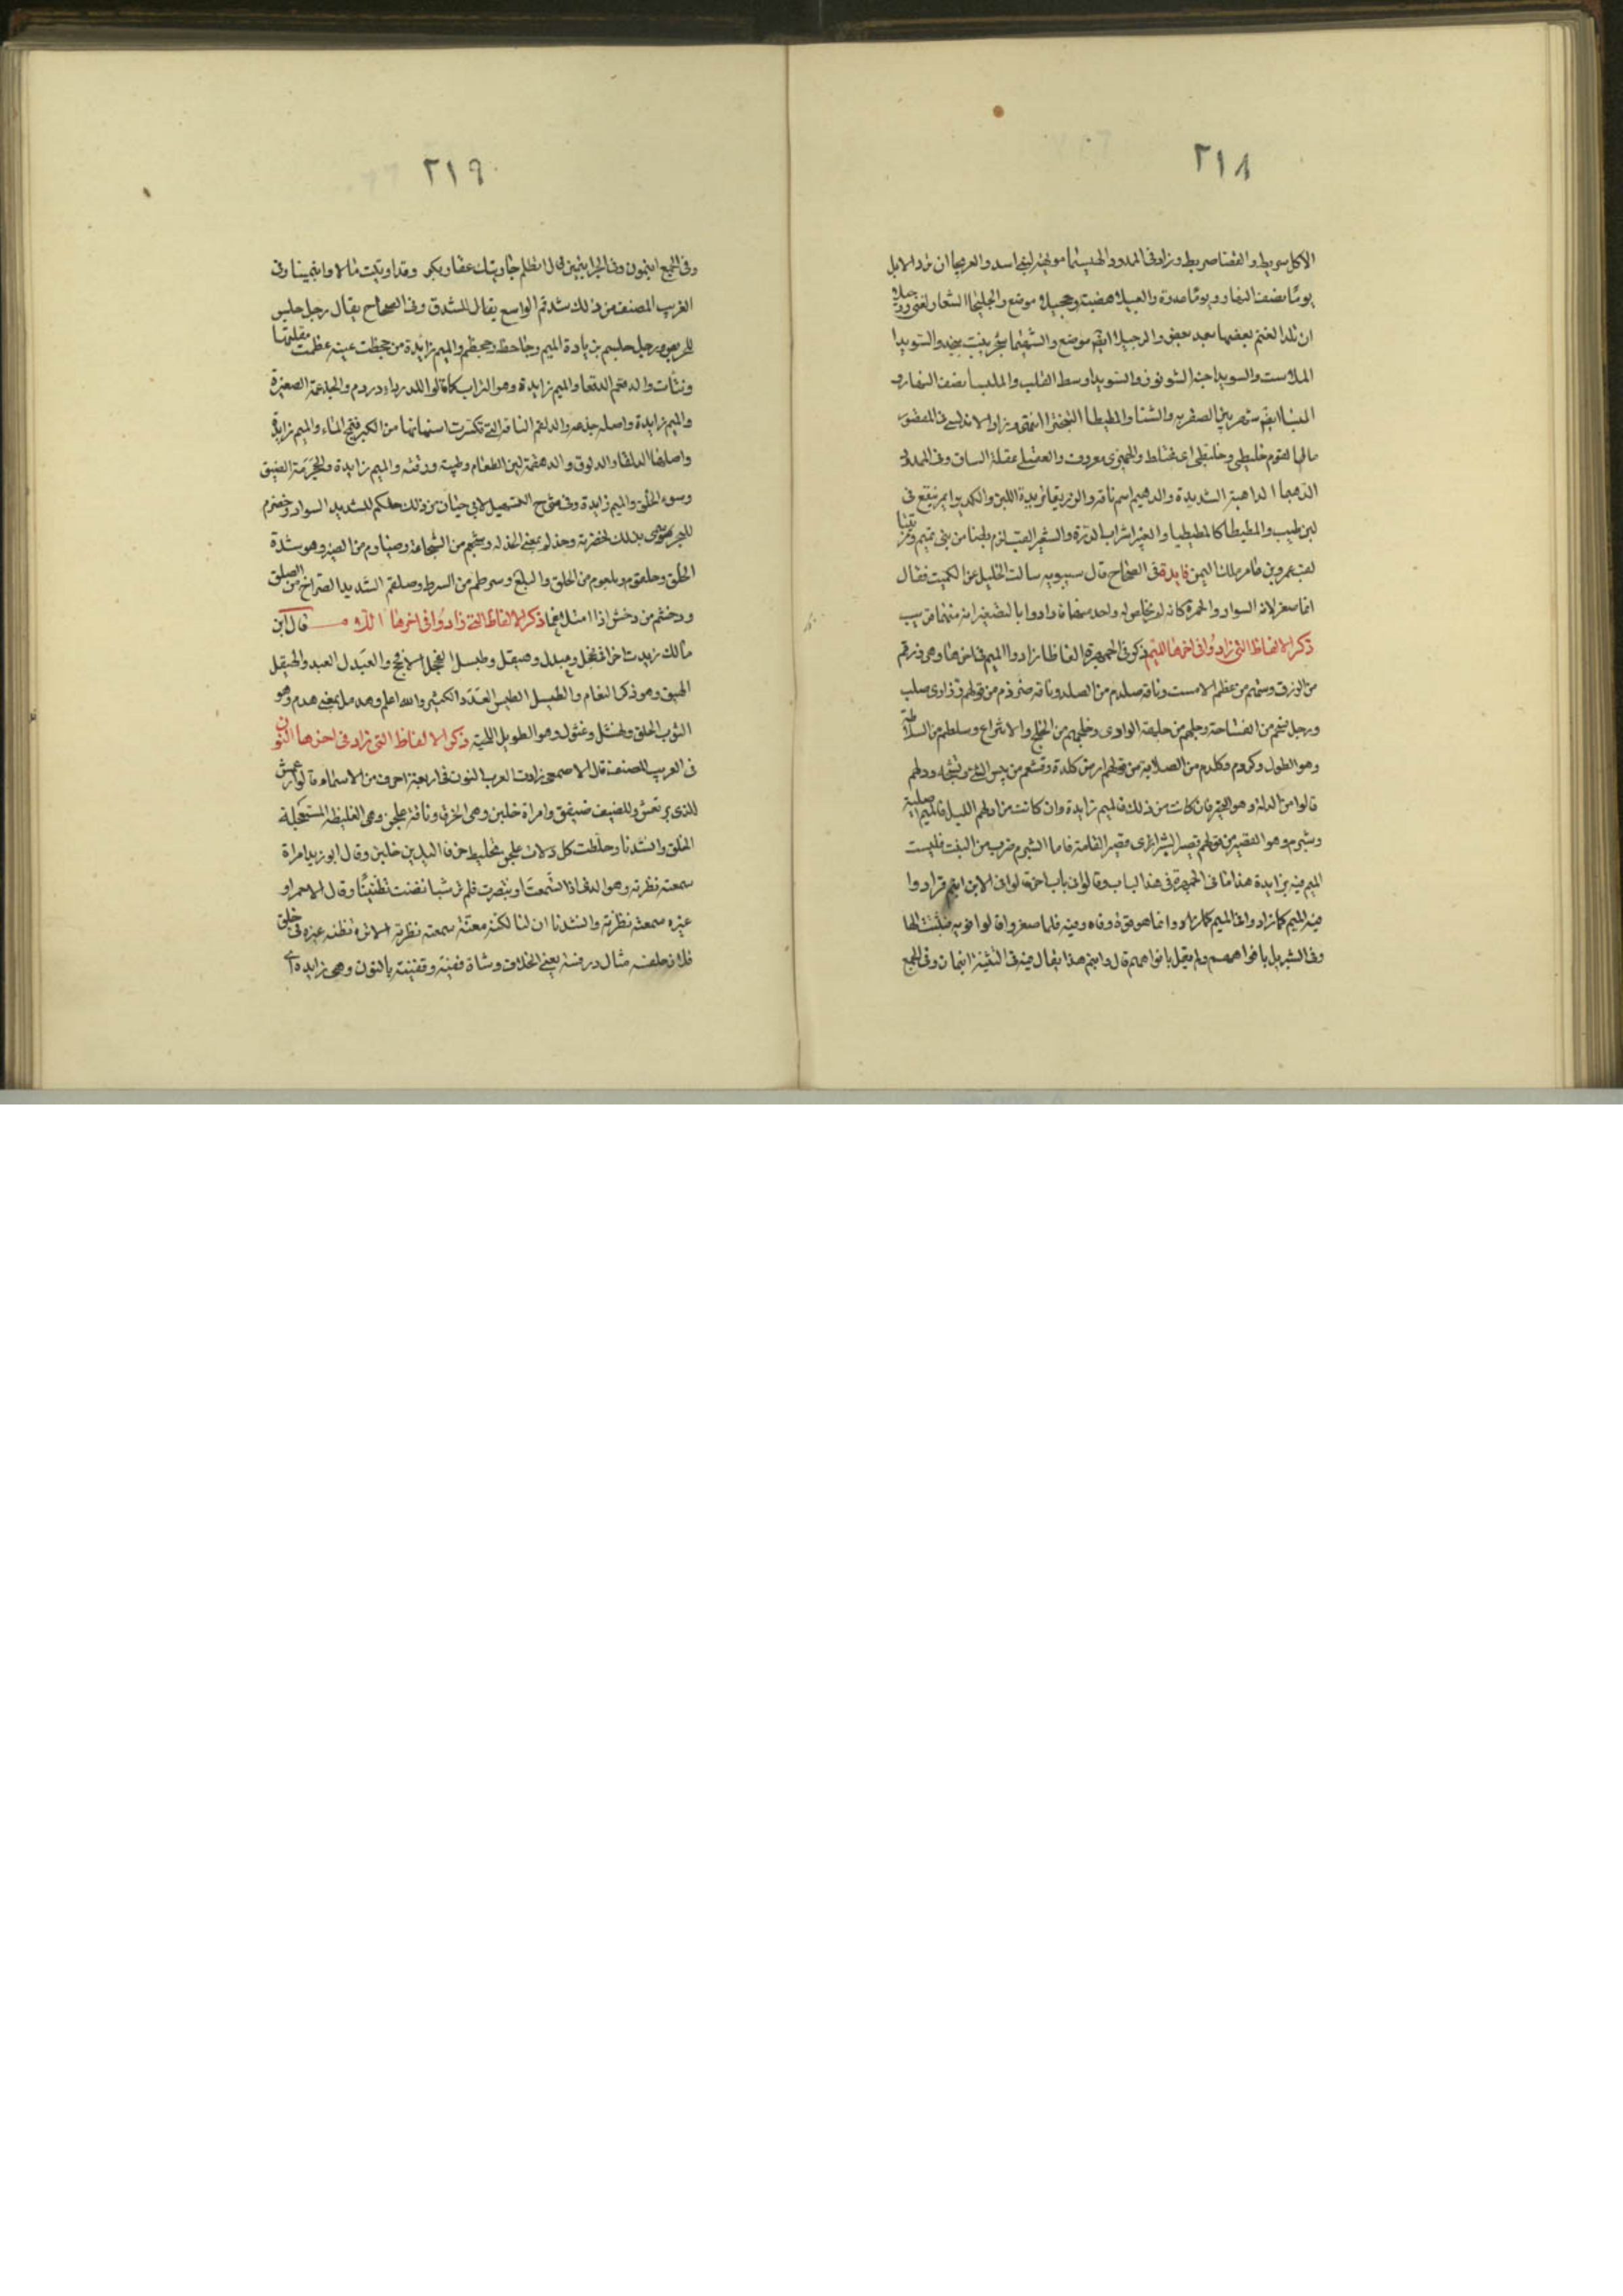 ٢١٨
الاكل سريط والقضا ضريط وزاد فى الممدود الهييما مويهة لبنى اسد والعريجا ان ترد الابل
يوما نصف النهار ويوما غدوة والعبيلا هضبة وحجيلا موضع والجليحا شعار لغنى
ان تلد الغنم بعضها بعد بعض والرجيلا ايضا موضع والسويدا
الملاست والسويدا حبة الشونوز والسويدا وسط القلب والمليسا نصف النهار و
المليسا ايضا شهر بين الصفرية والشتا والمطيطا التبختر انتهى وزاد الاندلسى فى المقصور
مالهم القوم خليطى وخليطى اى مختلط والجميزى معروف والعقيلى عقلة الساق وفى الممدود
الدهيما الداهية الشديدة والدهيم اسم ناقة والوريقا والكديرا تمر ينقع فى
لبن حليب والمطيطا كالمطيطيا والغبيرا شراب الذرة والشعيرا لقب لزم بطنا من بنى تميم ومزيقيا
لقب عمرو بن عامر ملك اليمن فايدة فى الصحاح قال سيبويه سالت الخليل عن الكميت فقال
انما صغر لانه بين السواد والحمرة كانه لم يخلص له واحد منهما فارادوا بالتصغير انه منهما قريب
ذكر الالفاظ التى زادوا فى اخرها الميم ذكر فى الجمهرة الفاظا زادوا الميم فى اخرها وهى زرقم
من الزرق وستهم من عظم الاست وناقة صلدم من الصلد وناقة ضرزم من قولهم ضرز اى صلب
ورجل فسحم من الفساحة وجلهم من جلهة الوادى وخلجم من الخلج والانتزاع وسلطم من السلاطة
وهو الطول وكردم وكلدم من الصلابة من قولهم ارض كلدة وقشعم من يبس الشى وتشنجه ودلهم
قالوا من الدله وهو التحير فان كان من ذلك فالميم زايدة وان كانت من ادلهم الليل فالميم اصلية
وشبرم وهو القصير من قولهم قصير الشبر اى قصير القامة فاما الشبرم ضرب من النبت فليست
الميم فيه بزايدة هذا ما فى الجمهرة فى هذا الباب وقالوا فى باب اخر قالوا فى الابن ابنم فزادوا
فيه الميم كما زادوا فى الفم وانما هو فوه وفاه وفيه فلما صغروا قالوا فويه فثبتت الها
وفى التنزيل بافواههم ولم يقل بافمامهم قال وابنم هذا يقال فيه فى التثنية ابنمان وفى الجمع
٢١٩
وفى الجمع ابنمون وفى الجر ابنمين قال انظلم جارتيك عقار بكر وقد اوتيت مالا وابنمينا وفى
الغريب المصنف من ذلك شدقم الواسع يقال الشدق وفى الصحاح يقال رجل حلس
للحريص ورجل حلسم بزيادة الميم وجاحظ وجحظم والميم زايدة من جحظت عينه عظمت مقلتها
ونتأت والدقعم الدقعا والميم زايدة وهو التراب كما قالوا للدرداء دردم والجذعمة الصغيرة
والميم زايدة واصله جذعة والدلقم الناقة التى تكسرت اسنانها من الكبر فتمج الماء والميم زايدة
واصلها الدلقا والدلوق والدهقمة لين الطعام وطيبه ورقته والميم زايدة والحجرمة الضيق
وسوء الخلق والميم زايدة وفى شرح التسهيل لابى حيان من ذلك حلكم للشديد السواد وخضرم
للبحر سمى بذلك لخضرته وخذلم بمعنى الخذله وشجعم من الشجاعة وضبارم من الضبر وهو شدة
الخلق وحلقوم وبلعوم من الحلق والبلع وسرطم من السرط وصلقم الشديد الصراخ من الصلق
ودخشم من دخش اذا امتلا لحما ذكر الالفاظ التى زادوا فى اخرها اللام قال ابن
مالك زيدت اخرا فى فحجل وعبدل وهيقل وطيسل الفحجل الافحج والعبدل العبد والهيقل
الهيق وهو ذكر النعام والطيسل الطيس العدد الكثير والله اعلم وهدمل بمعنى هدم وهو
الثوب الخلق ونهشل وعثول وهو الطويل اللحية ذكر الالفاظ التى زاد فى اخرها النون
فى الغريب المصنف قال الاصمعى زادت العرب النون فى اربعة احرف من الاسماء قالوا رعشن
للذى يرتعش وللضيف ضيفن وامراة خلبن وهى الخرقا وناقة علجن وهى الغليظة المستعجلة
الخلق وانشدنا وخلطت كل دلاث علجن تخليط خرقا اليدين خلبن وقال ابو زيد امراة
سمعنه نظرنه وهى التى اذا تسمعت او تبصرت فلم تر شيا تظنت تظنيا وقال الاحمر او
غيره سمعنه نظرنه وانشدنا ان لنا لكنه معنه سمعنه نظرنه الا تره تظنه غيره فى خلق
فلان خلفنه مثال درفسة يعنى الخلاف وشاة قفينة وقفينة بالنون وهى زايدة اى